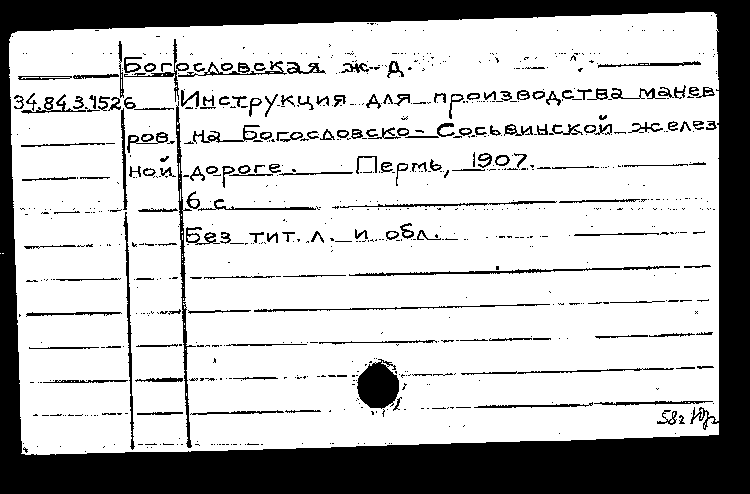 Богословская ж-д.
34.843.1526 Инструкция для производства манев-
ров на Богословско-Сосьвинской желез-
ной дороге. Пермь, 1907.
6 с.
Без тит. л. и обл.